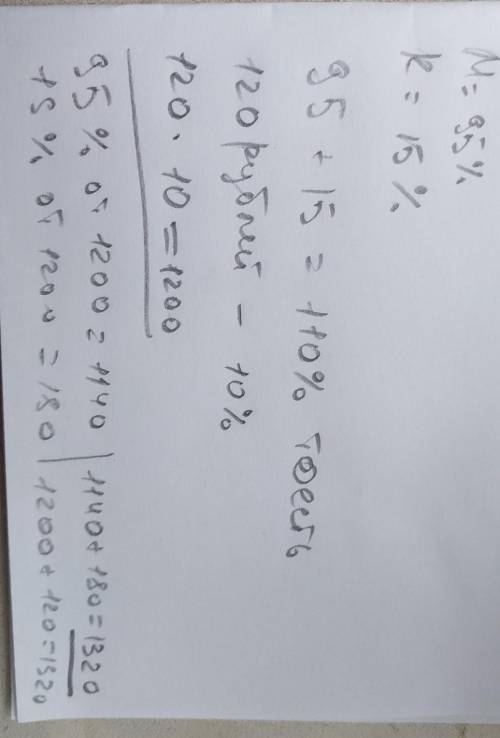 М = 95%
К = 15%
95 + 15 = 110% тоесть
120 рублей - 10%
120 . 10 = 1200
95% от 1200 = 1140 | 1140 + 180 = 1320
15% от 1200 = 180 | 1200 + 120 = 1320